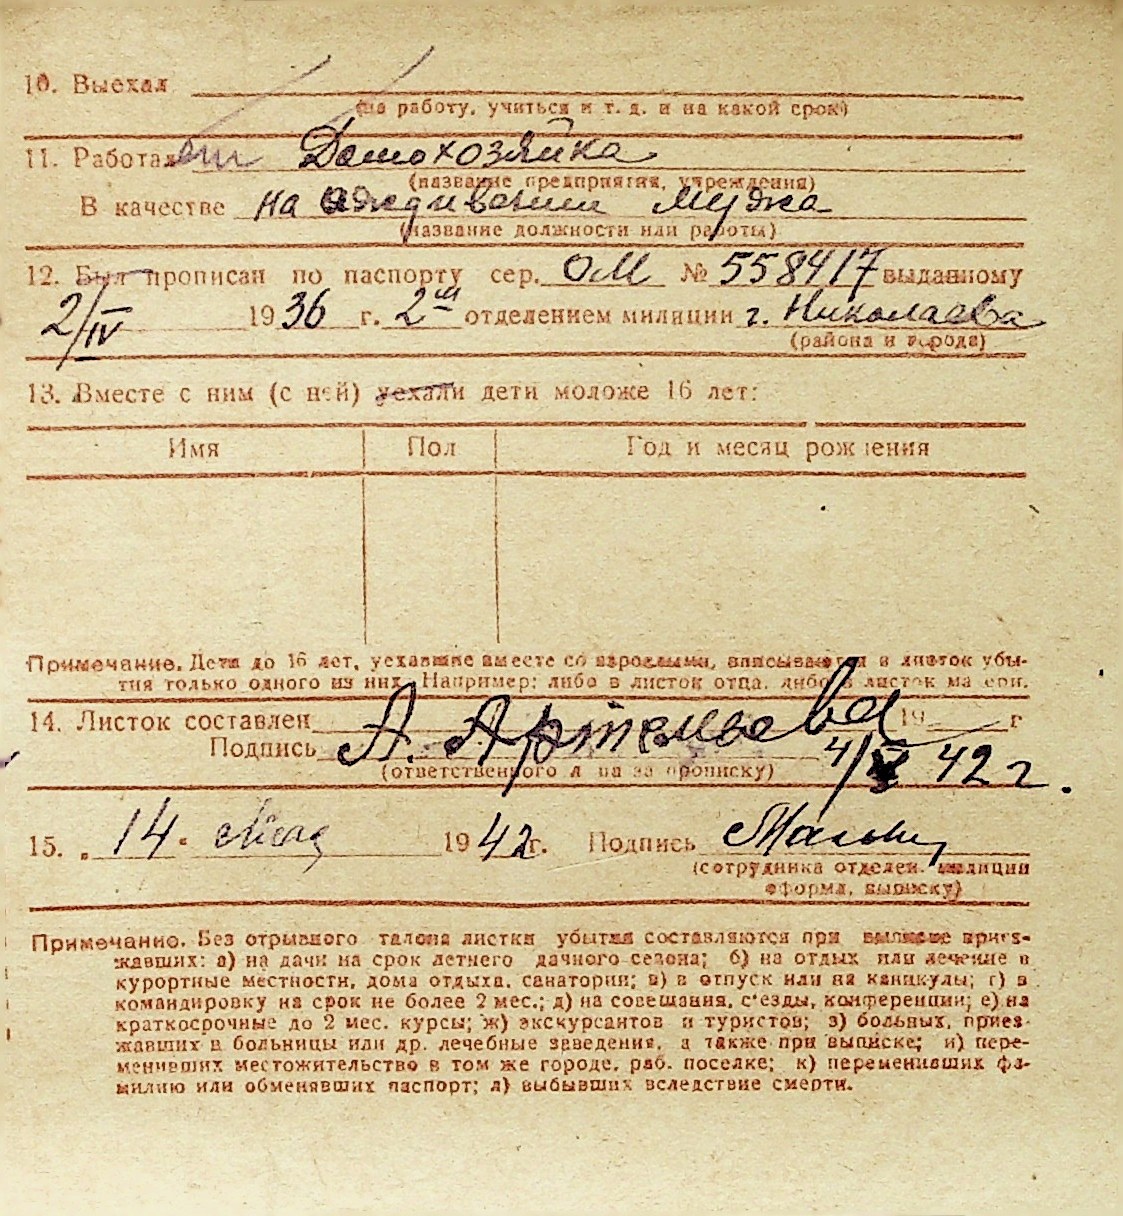 10. Выехал
(на работу, учиться и т. д. и на какой срок)
11. Работал Домохозяйка
(название предприятия, учреждения)
В качестве на иждивении мужа
(название должности или работы)
12. Был прописан по паспорту сер. ОМ № 558417 выданному
2/IV 1936 г. 2ым отделением милиции г. Николаева
(района и города)
13. Вместе с ним (с ней) уехали дети моложе 16 лет:
Имя Пол Год и месяц рождения
Примечание. Дети до 16 лет, уехавшие вместе со взрослыми, вписываются в листок убы-
тия только одного из них. Например: либо в листок отца, либо в листок матери.
14. Листок составлен 19 г
Подпись А. Артемьева 4/V 42 г.
(ответственного лица за прописку)
15. „14" мая 1942 г. Подпись
(сотрудника отделен. милиции
оформл. выписку)
Примечание. Без отрывного талона листки убытия составляются при выписке приез-
жавших: а) на дачи на срок летнего дачного сезона; б) на отдых или лечение в
курортные местности, дома отдыха, санатории; в) в отпуск или на каникулы; г) в
командировку на срок не более 2 мес.; д) на совещания, с'езды, конференции; е) на
краткосрочные до 2 мес. курсы; ж) экскурсантов и туристов; з) больных, приез-
жавших в больницы или др. лечебные заведения, а также при выписке; и) пере-
менивших местожительство в том же городе, раб. поселке; к) переменивших фа-
милию или обменявших паспорт; л) выбывших вследствие смерти.